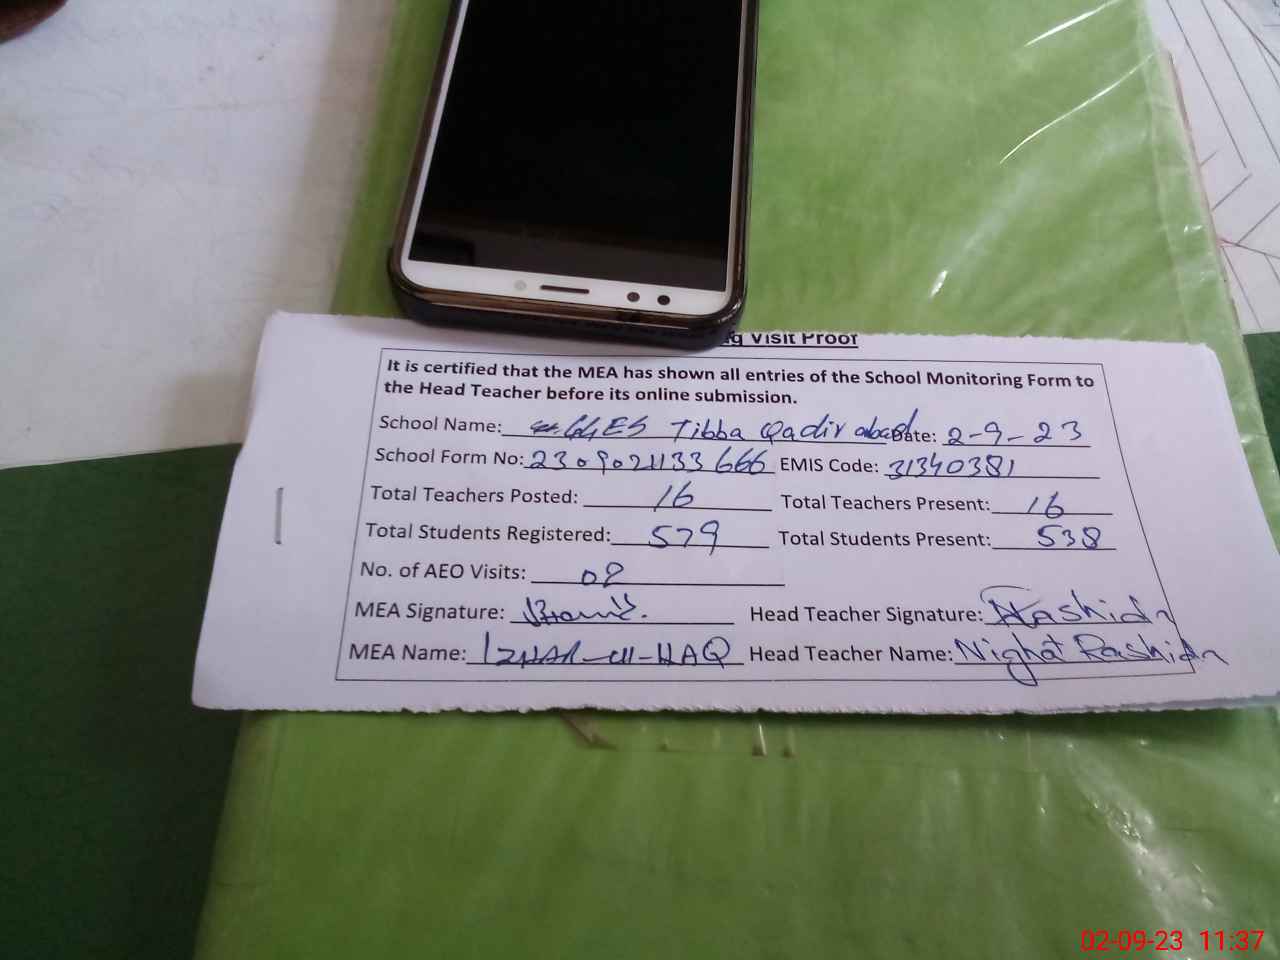 Visit Proof
It is certified that the MEA has shown all entries of the School Monitoring Form to
the Head Teacher before its online submission.
School Name: GGES Tibba Qadir abad Date: 2-9-23
School Form No: 2309021133666 EMIS Code: 31340381
Total Teachers Posted: 16 Total Teachers Present: 16
Total Students Registered: 579 Total Students Present: 538
No. of AEO Visits: 02
MEA Signature: Head Teacher Signature: NRashida
MEA Name: IZHAR-ul-HAQ Head Teacher Name: Nighat Rashida
02-09-23 11:37